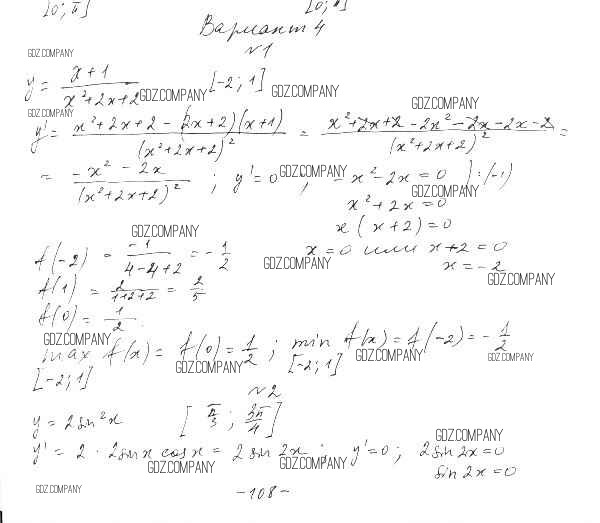 [0; π] [0; π]
Вариант 4
N1
GDZ.COMPANY
y = (x+1)/(x²+2x+2) GDZ.COMPANY [-2; 1] GDZ.COMPANY
GDZ.COMPANY GDZ.COMPANY
y' = (x²+2x+2-(2x+2)(x+1))/(x²+2x+2)² = (x²+2x+2-2x²-2x-2x-2)/(x²+2x+2)² =
= (-x²-2x)/(x²+2x+2)² ; y'=0 GDZ.COMPANY ; -x²-2x=0 ):(-1)
x²+2x=0
x(x+2)=0
GDZ.COMPANY
f(-2) = -1/(4-4+2) = -1/2 GDZ.COMPANY x=0 или x+2=0
x=-2
GDZ.COMPANY
f(1) = 2/(1+2+2) = 2/5
f(0) = 1/2
GDZ.COMPANY
max f(x) = f(0) = 1/2 ; min f(x) = f(-2) = -1/2
[-2; 1] GDZ.COMPANY [-2; 1] GDZ.COMPANY GDZ.COMPANY
N2
y = 2sin²x [π/3 ; 3π/4]
GDZ.COMPANY
y' = 2·2sinx cosx = 2sin2x ; y'=0; 2sin2x=0
GDZ.COMPANY GDZ.COMPANY sin2x=0
GDZ.COMPANY
-108-